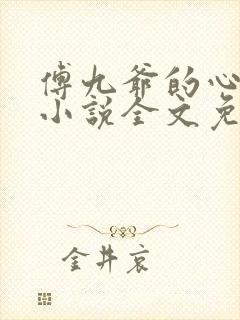 傅九爷的心
小说全文免
金井哀